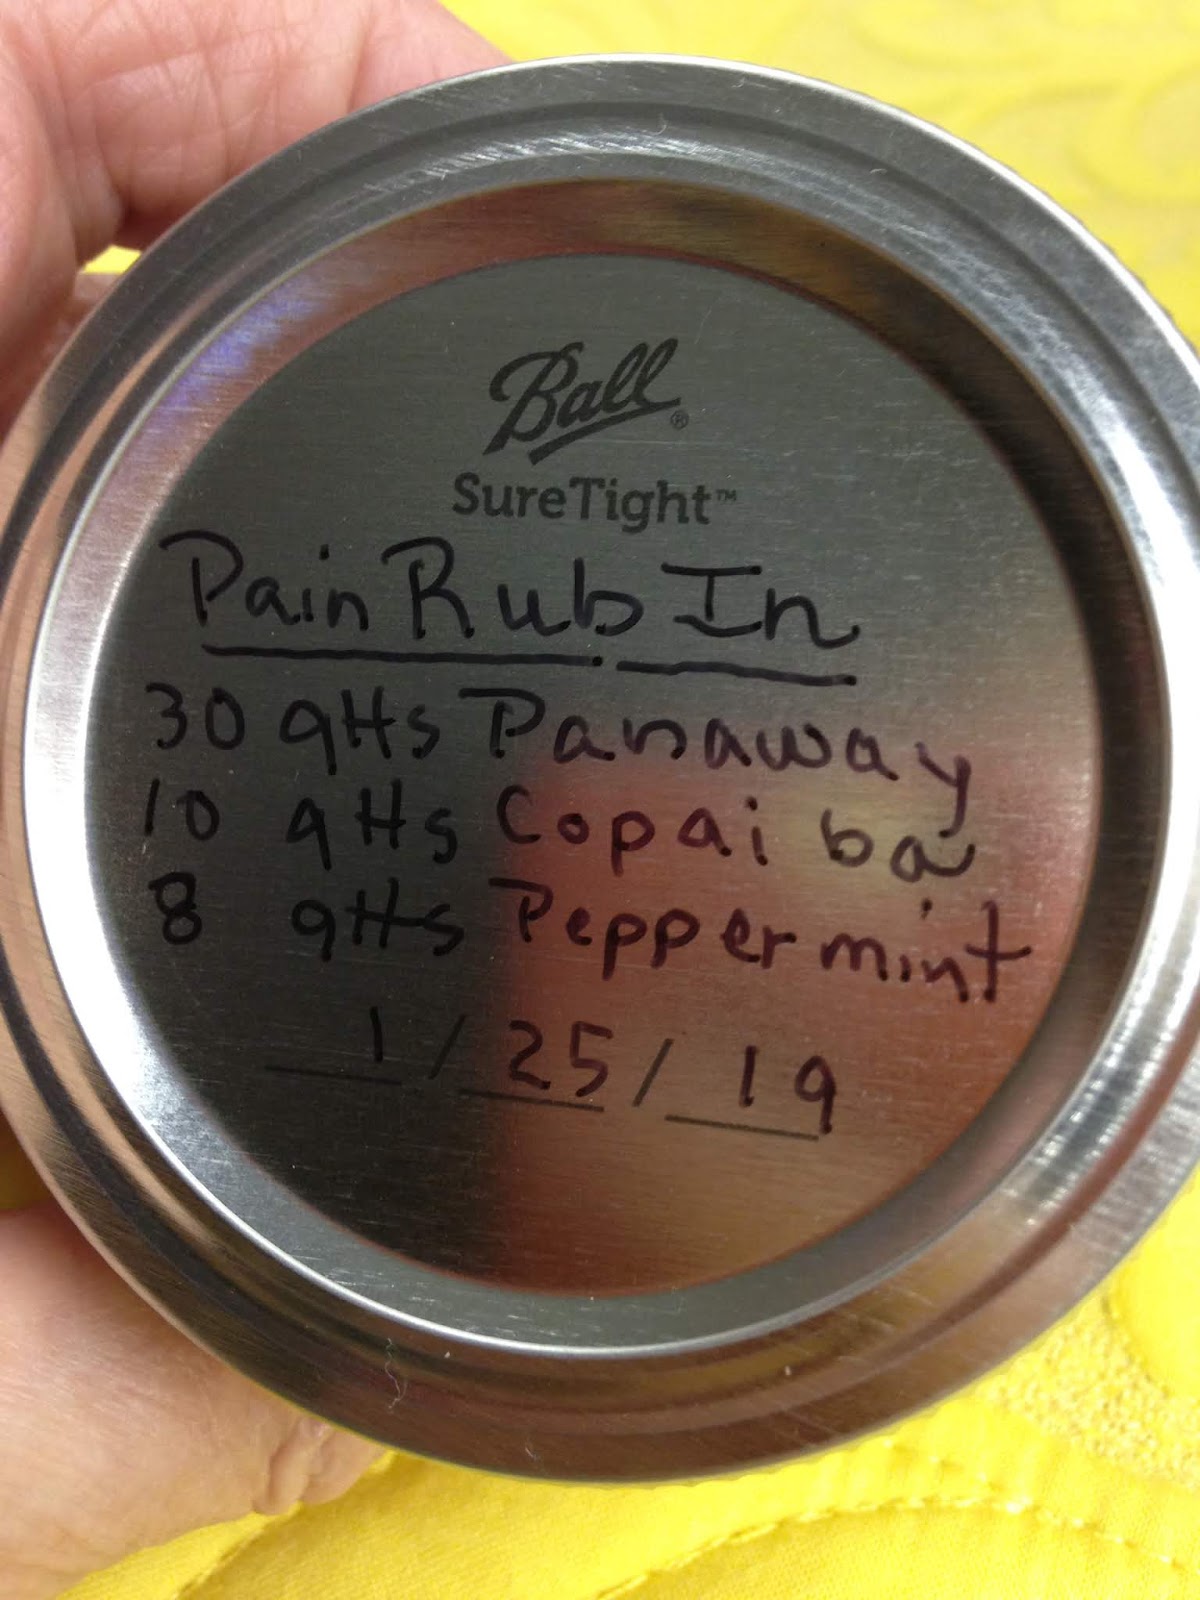 Ball®
SureTight™
Pain Rub In
30 gtts Panaway
10 gtts Copaiba
8 gtts Peppermint
1/25/19